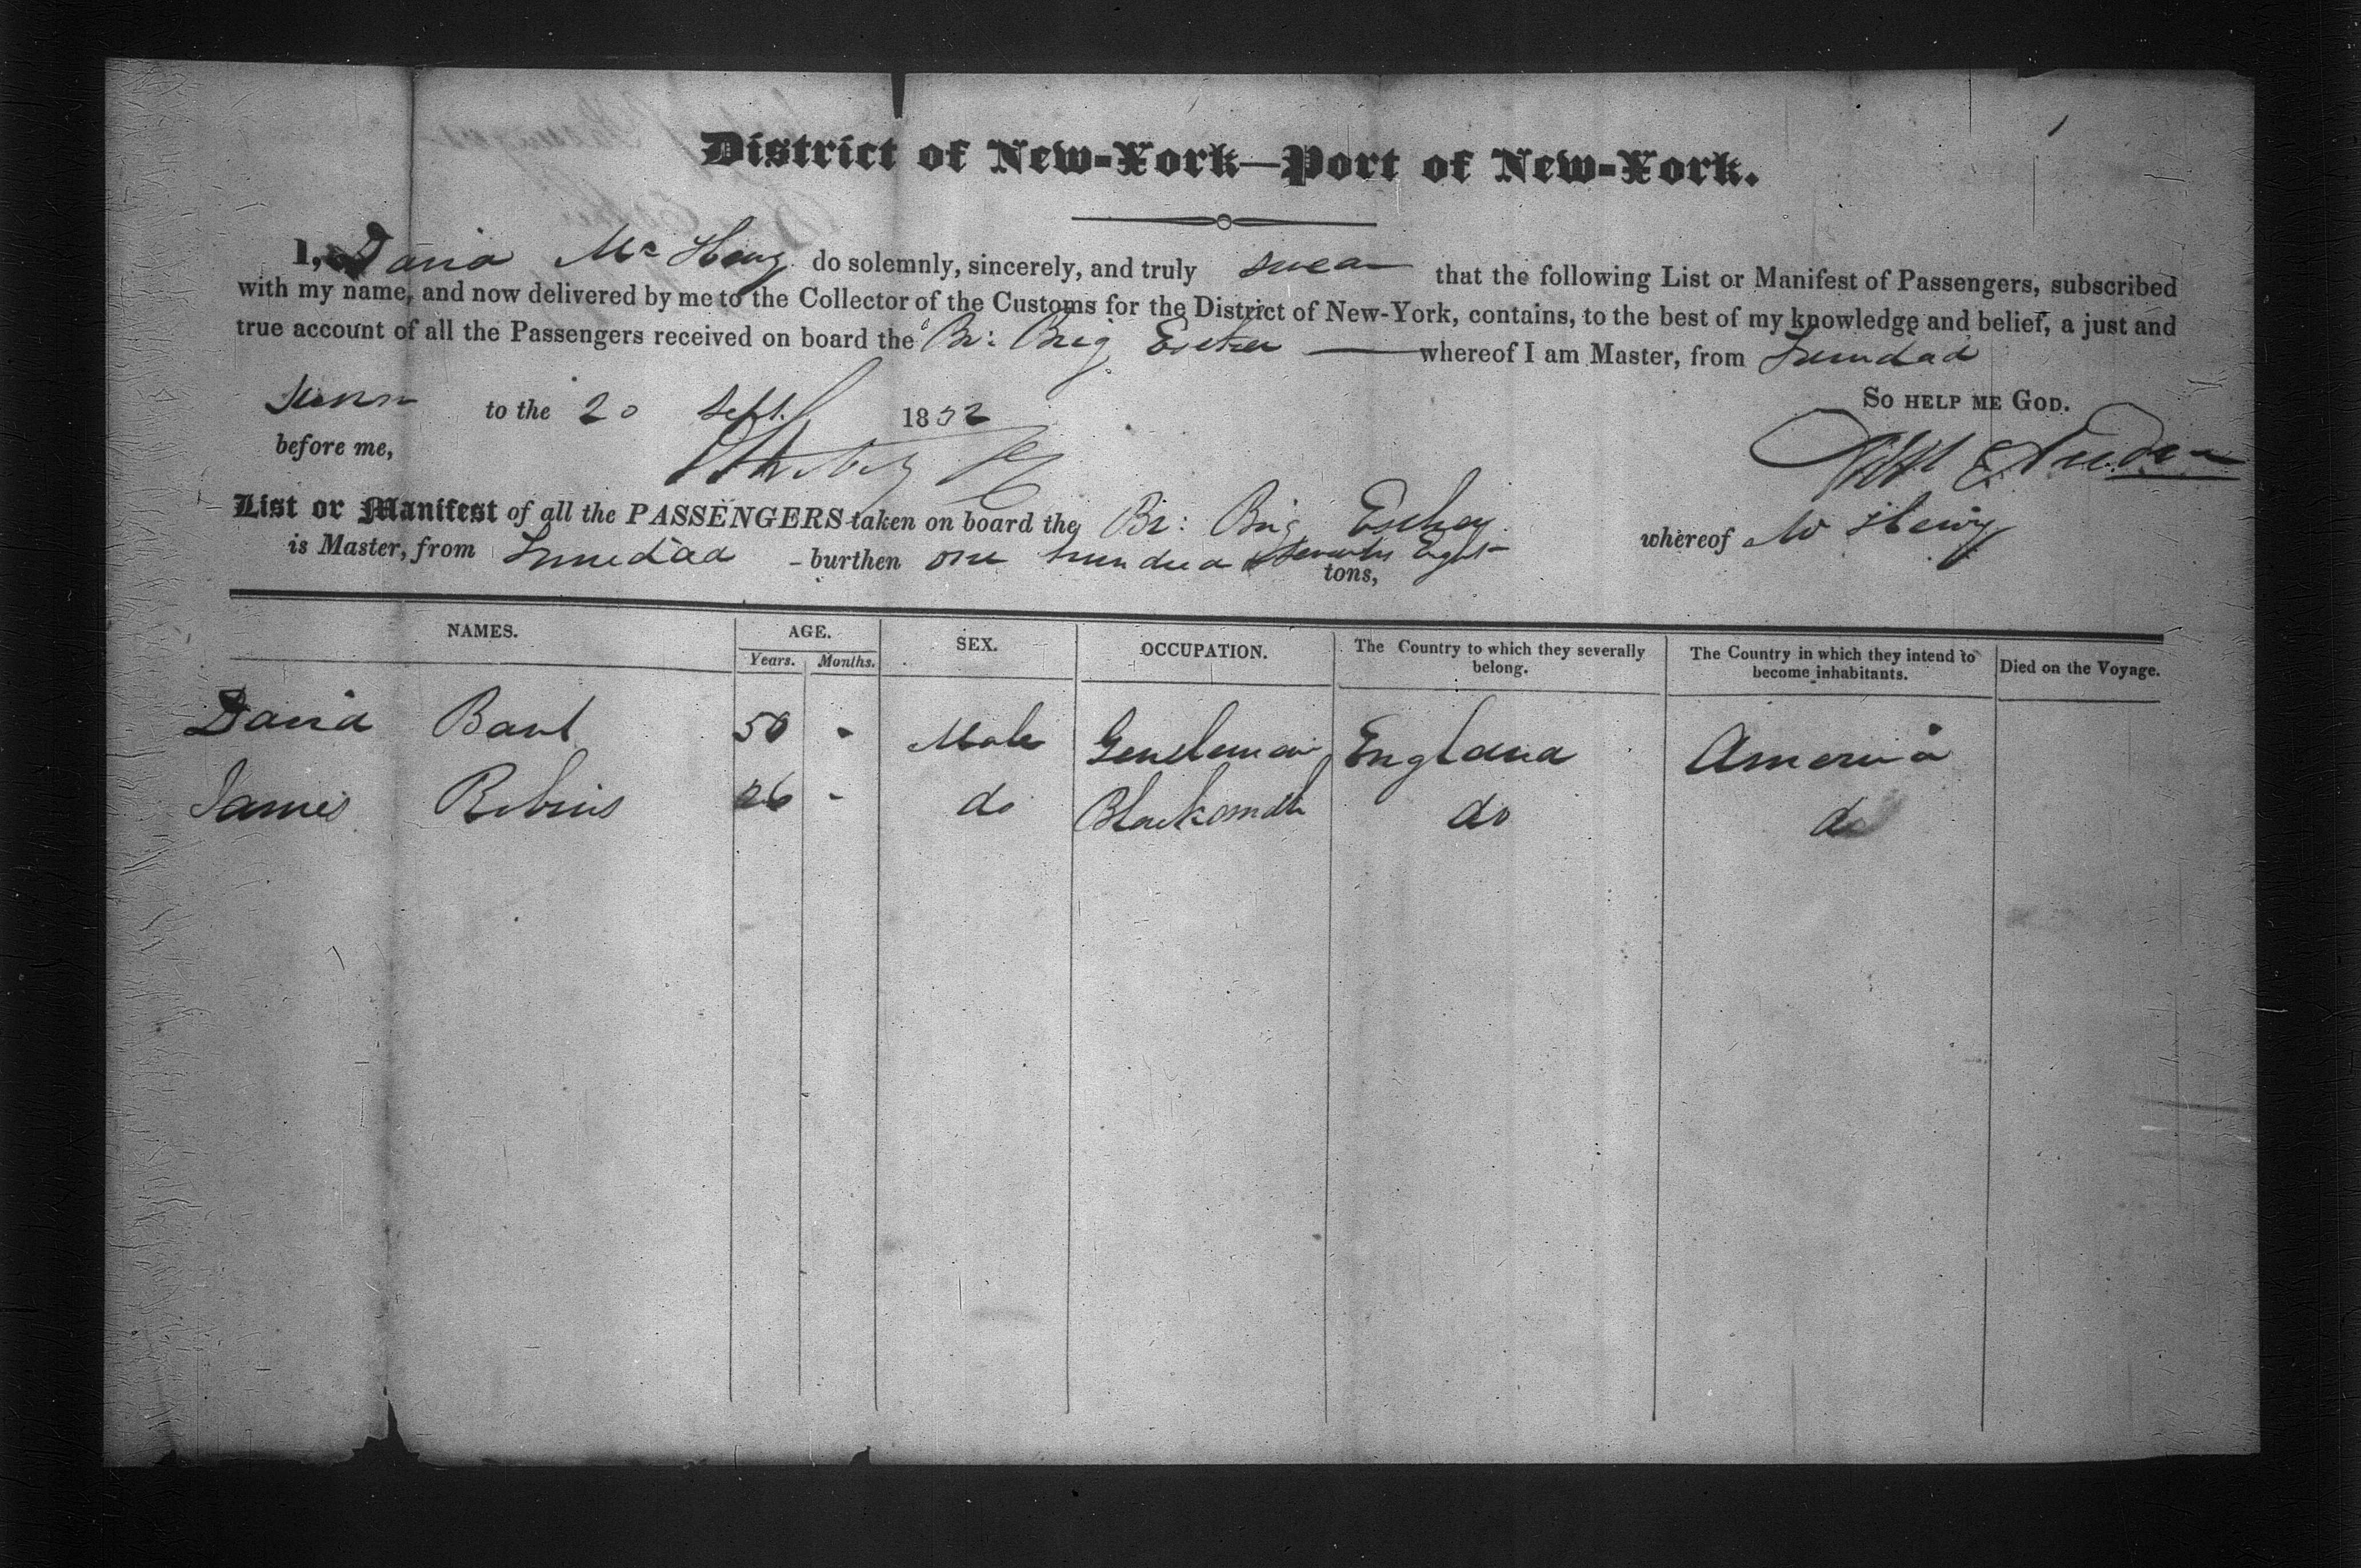 District of New-York—Port of New-York.
I, David Mc do solemnly, sincerely, and truly swear that the following List or Manifest of Passengers, subscribed
with my name, and now delivered by me to the Collector of the Customs for the District of New-York, contains, to the best of my knowledge and belief, a just and
true account of all the Passengers received on board the Br: Brig whereof I am Master, from Trinidad
So help me God.
Sworn to the 20 Sept. 1832
before me,
List or Manifest of all the PASSENGERS taken on board the Br: Brig whereof
is Master, from Trinidad burthen one hundred Seventy Eight tons,
NAMES. AGE. SEX. OCCUPATION. The Country to which they severally belong. The Country in which they intend to become inhabitants. Died on the Voyage.
Years. Months.
David 50 - Male Gentleman England America
James 26 - do Blacksmith do do